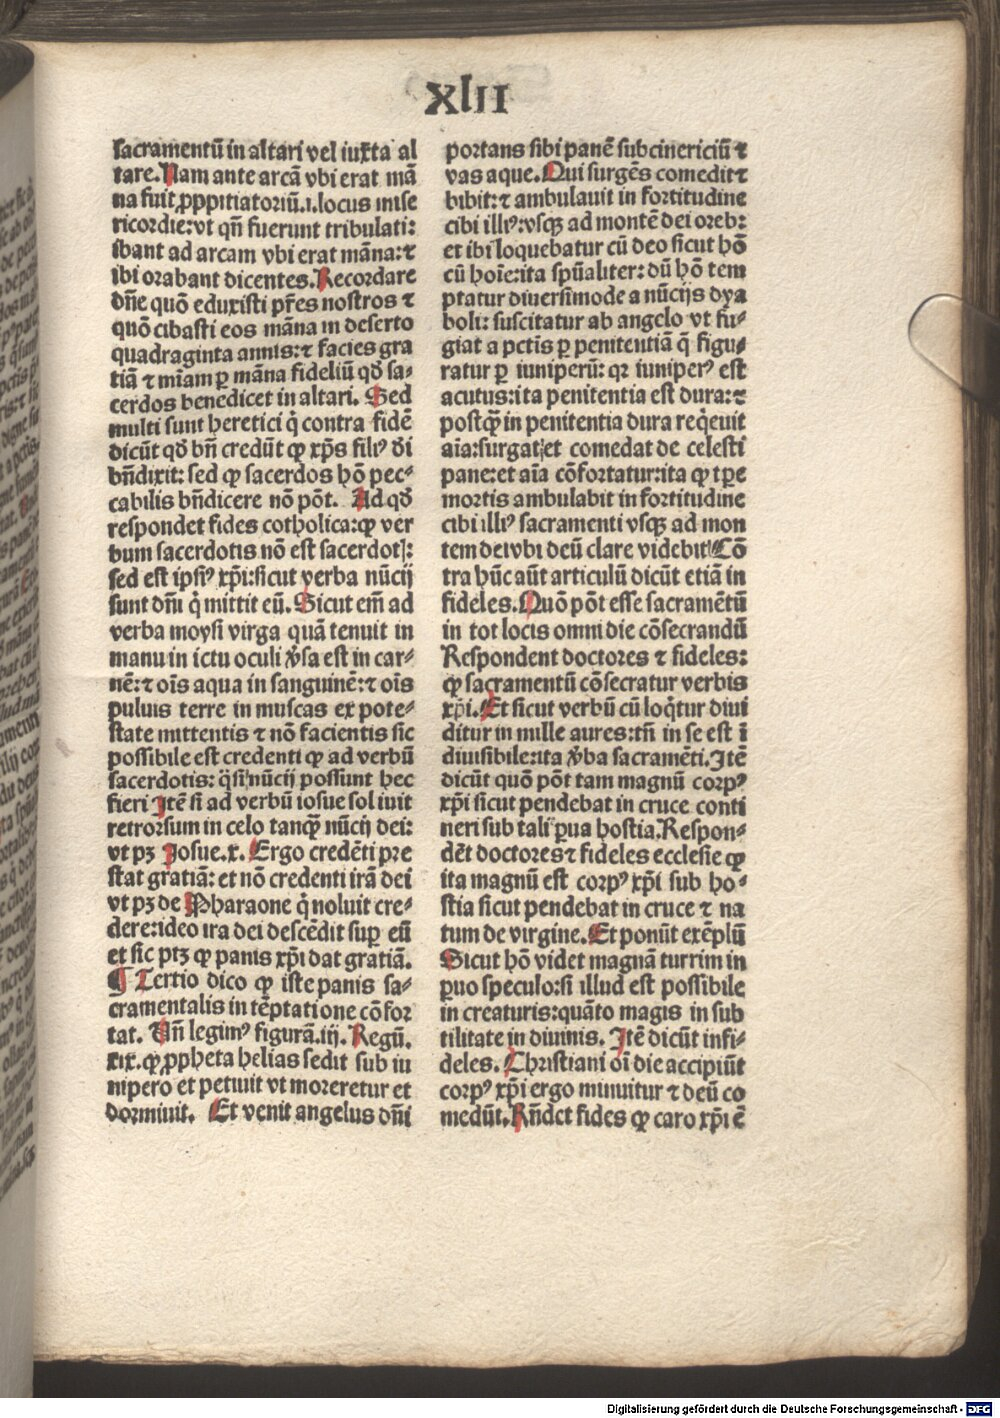 xlii
sacramentū in altari vel iuxta al
tare. Nam ante arcā vbi erat mā
na fuit ꝓppitiatoriū .i. locus mise
ricordie: vt qn̄ fuerunt tribulati:
ibant ad arcam vbi erat māna: ⁊
ibi orabant dicentes. Recordare
dn̄e quō eduxisti pr̄es nostros ⁊
quō cibasti eos māna in deserto
quadraginta annis: ⁊ facies gra
tiā ⁊ mīam ꝑ māna fideliū qđ sa⸗
cerdos benedicet in altari. Sed
multi sunt heretici q̇ contra fidē
dicūt qđ bn̄ credūt ꝙ xp̄s filiꝰ đi
bn̄dixit: sed ꝙ sacerdos hō pec⸗
cabilis bn̄dicere nō pōt. Ad qđ
respondet fides cotholica: ꝙ ver
bum sacerdotis nō est sacerdotꝭ:
sed est ipsiꝰ xp̄i: sicut verba nūcij
sunt dn̄i q̇ mittit eū. Sicut em̄ ad
verba moysi virga quā tenuit in
manu in ictu oculi v̓sa est in car⸗
nē: ⁊ oīs aqua in sanguinē: ⁊ oīs
puluis terre in muscas ex pote⸗
state mittentis ⁊ nō facientis sic
possibile est credenti ꝙ ad verbū
sacerdotis: q̄si nūcij possunt hec
fieri Itē si ad verbū iosue sol iuit
retrorsum in celo tanqꝫ̄ nūcij dei:
vt pꝫ Josue .x. Ergo credēti pre
stat gratiā: et nō credenti irā dei
vt pꝫ de Pharaone q̇ noluit cre⸗
dere: ideo ira dei descēdit suꝑ eū
et sic ptꝫ ꝙ panis xp̄i dat gratiā.
¶ Tertio dico ꝙ iste panis sa⸗
cramentalis in tēptatione cōfor
tat. Vn̄ legimꝰ figurā .iij. Regū.
xix. ꝙ ꝓpheta helias sedit sub iu
nipero et petiuit vt moreretur et
dormiuit. Et venit angelus dn̄i
portans sibi panē subcinericiū ⁊
vas aque. Qui surgēs comedit ⁊
bibit: ⁊ ambulauit in fortitudine
cibi illiꝰ: vsqꝫ ad montē dei oreb:
et ibi loquebatur cū deo sicut hō
cū hoīe: ita spūaliter: dū hō tem
ptatur diuersimode a nūcijs dya
boli: suscitatur ab angelo vt fu⸗
giat a pctīs ꝑ penitentiā q̄ figu⸗
ratur ꝑ iuniperū: qꝛ iuniperꝰ est
acutus: ita penitentia est dura: ⁊
postqꝫ̄ in penitentia dura reqeuit
aīa: surgat et comedat de celesti
pane: et aīa cōfortatur: ita ꝙ tꝑe
mortis ambulabit in fortitudine
cibi illiꝰ sacramenti vsqꝫ ad mon
tem dei vbi deū clare videbit Cō
tra hūc aūt articulū dicūt etiā in
fideles. Quō pōt esse sacramētū
in tot locis omni die cōsecrandū
Respondent doctores ⁊ fideles:
ꝙ sacramentū cōsecratur verbis
xp̄i. Et sicut verbū cū loq̇tur diui
ditur in mille aures: tn̄ in se est ī
diuisibile: ita v̓ba sacramēti. Itē
dicūt quō pōt tam magnū corpꝰ
xp̄i sicut pendebat in cruce conti
neri sub tali ꝑua hostia. Respon⸗
dēt doctores ⁊ fideles ecclesie ꝙ
ita magnū est corpꝰ xp̄i sub ho⸗
stia sicut pendebat in cruce ⁊ na
tum de virgine. Et ponūt exēplū
Sicut hō videt magnā turrim in
ꝑuo speculo: si illud est possibile
in creaturis: quāto magis in sub
tilitate in diuinis. Itē dicūt infi⸗
deles. Christiani oī die accipiūt
corpꝰ xp̄i ergo minuitur ⁊ deū co
medūt. Rn̄det fides ꝙ caro xp̄i ē
Digitalisierung gefördert durch die Deutsche Forschungsgemeinschaft - DFG